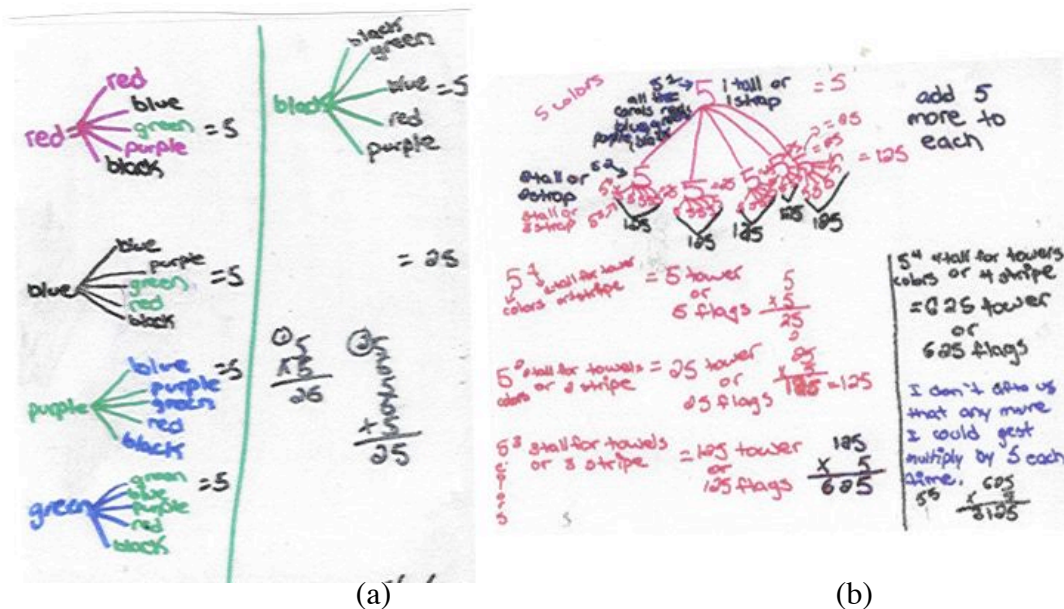 red
blue
red green = 5
purple
black
blue
purple
blue green = 5
red
black
blue = 5
purple
purple green
red
black
green = 5
blue
green purple
red
black
black
green
black blue = 5
red
purple
= 25
① 5
x 5
25
② 5
5
5
5
+ 5
25
(a)
5 colors
5¹ → 5 1 tall or
1 strap = 5
all the
purple black
add 5
more to
each
5² → 5 5 5 5
2 tall or
2 strap
3 tall or
3 strap
= 25
= 125
125 125 125 125 125
5¹ 1 tall for tower
colors or 1 stripe
= 5 tower
or
5 flags
5
x 5
25
5² 2 tall for towels
colors or 2 stripe
= 25 tower
or
25 flags
25
x 5
125 = 125
5³ 3 tall for towels
or 3 stripe
colors
= 125 tower
or
125 flags
125
x 5
625
5⁴ 4 tall for towels
colors or 4 stripe
= 625 tower
or
625 flags
I don't afto us
that any more
I could gest
multiply by 5 each
time.
5⁵ 625
x 5
3125
(b)